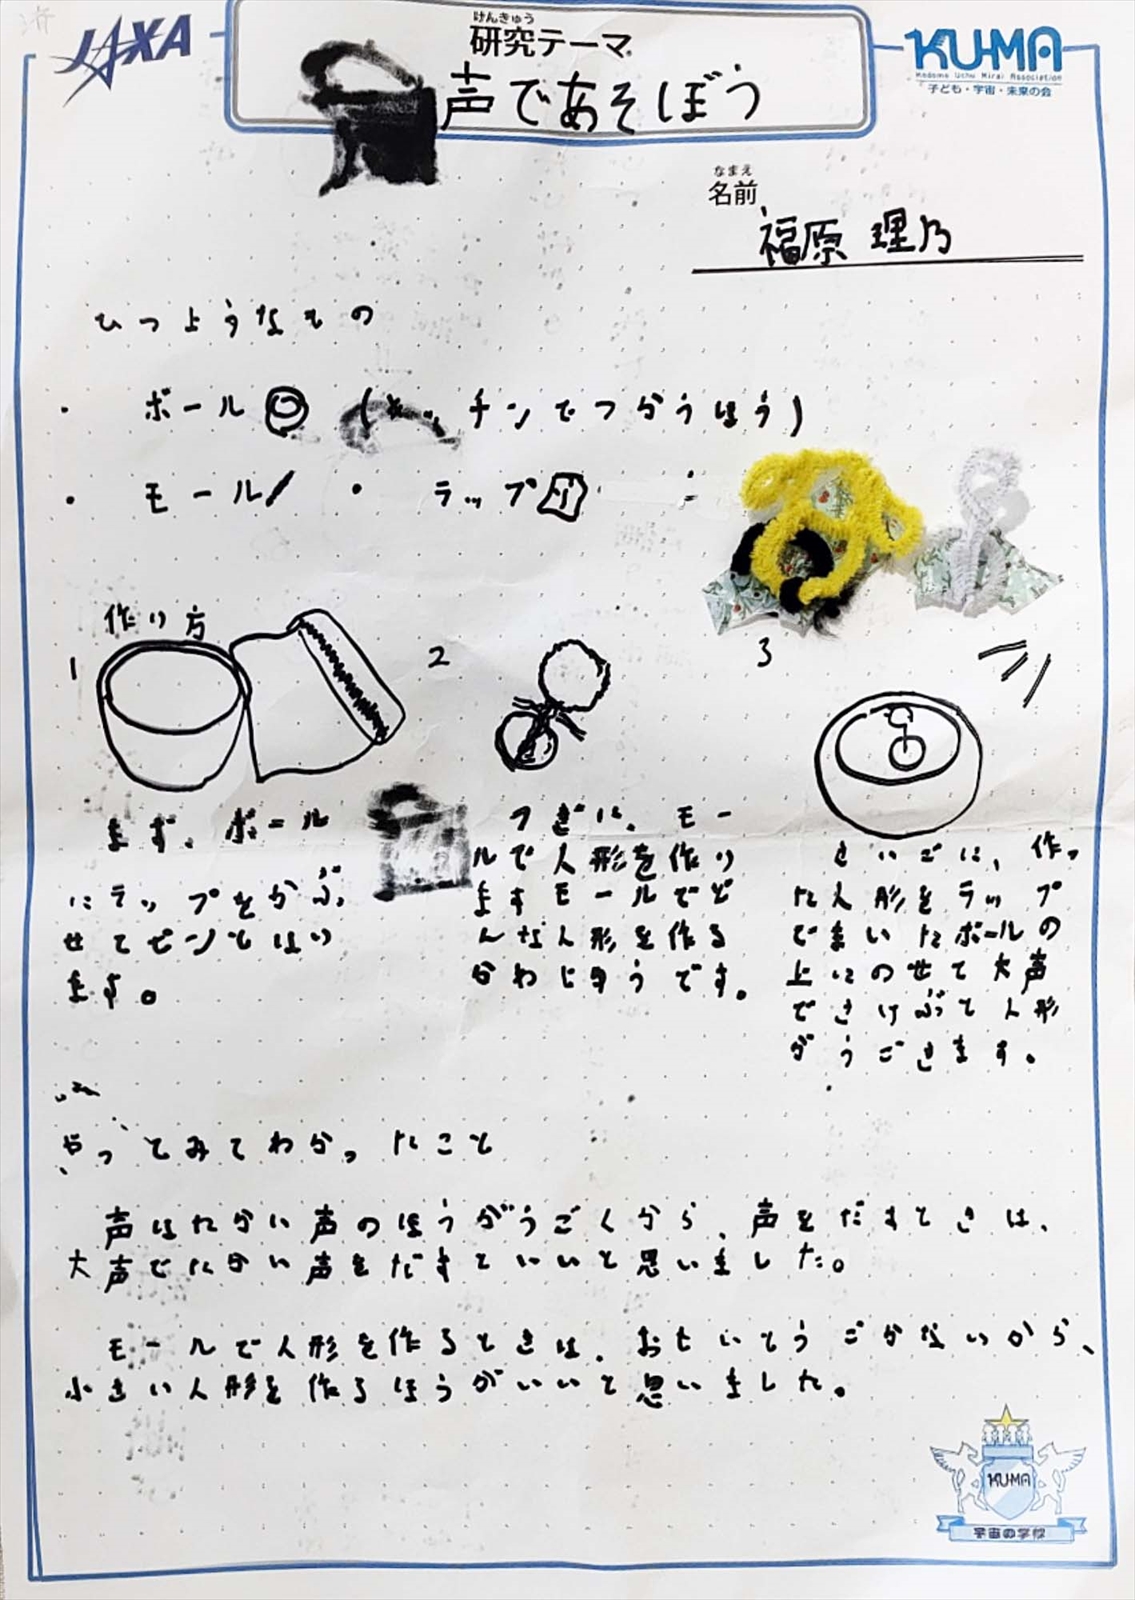 済
JAXA
けんきゅう
研究テーマ
声であそぼう
KU-MA
Kodomo Uchu Mirai Association
子ども・宇宙・未来の会
なまえ
名前
福原 理乃
ひつようなもの
・ ボール (キッチンでつかうほう)
・ モール ・ ラップ
作り方
1
2
3
まず、ボール
にラップをかぶ
せてピンとはり
ます。
つぎに、モー
ルで人形を作り
ますモールでど
んな人形を作る
かわじゆうです。
さいごに、作っ
た人形をラップ
でまいたボールの
上にのせて大声
でさけぶと人形
がうごきます。
やってみてわかったこと
声はたかい声のほうがうごくから、声をだすときは、
大声でたかい声をだすといいと思いました。
モールで人形を作るときは、おもいとうごかないから、
小さい人形を作るほうがいいと思いました。
KUMA
宇宙の学校